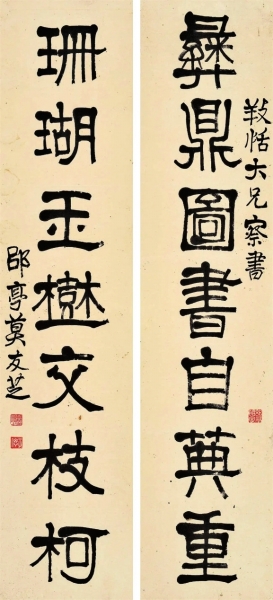 彝鼎圖書自英重
敔恬大兄察書
珊瑚玉樹交枝柯
郘亭莫友芝